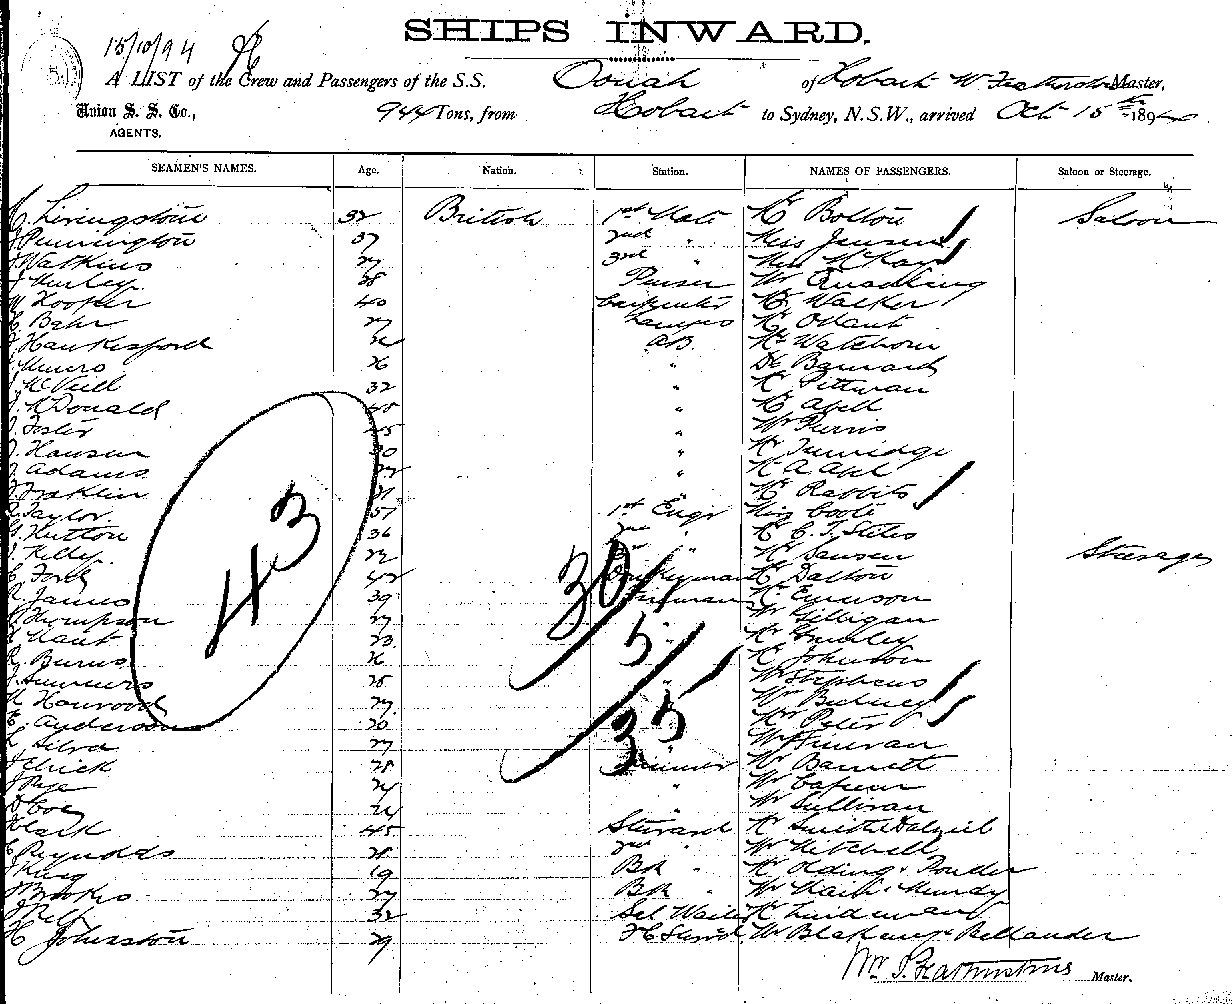 15/10/94
SHIPS INWARD.
A LIST of the Crew and Passengers of the S.S. Oonah of Hobart W Featherstone Master,
Union S. S. Co., AGENTS. 944 Tons, from Hobart to Sydney, N.S.W., arrived Oct 15th 1894
SEAMEN'S NAMES. Age. Nation. Station. NAMES OF PASSENGERS. Saloon or Steerage.
Livingstone 32 British 1st Mate Mr Bolton Saloon
Pennington 37 2nd " Miss Jensen
Watkins 27 3rd " Miss McKay
Hurley 28 Purser Mr
Hooper 40 Carpenter Mr Walker
Bahr 27 Lamps Mr
Hawkesford AB. Mr Watchorn
Munro 26 " Dr Barnard
McNeill 32 " Mr Pittman
McDonald 45 " Mr Abell
Foster 45 " Mr Perris
Hansen 30 " Mr Turnidge
Adams " Mr A Abel
Franklin Mr Rabbits
Taylor 51 1st Engr Miss Coote
Hutton 36 2nd " Mr C. T. Stiles
Kelly 3rd " Mr Jansen Steerage
Ford 42 Donkeyman Mr Dalton
James 39 Fireman Mr Emerson
Thompson 27 Mr Gilligan
Hant 23 " Mr
Burns 26 Mr Johnson
Summers 25 " Mr Stephens
Harwood 27 Mr
Anderson 20 Mr Peter
Silva 27 Mr Finnran
Elrick 28 Trimmer Mr Barnett
Pye 24 " Mr
D Coe 24 Mr Sullivan
Clark 45 Steward Mr Smith & Dalziel
Reynolds 28 2nd " Mr Mitchell
King 19 BK " Mr Olding & Poulter
Brookes 27 BK " Mr & Mundy
Kelf 32 Sal Waiter Mr Lindeman
H Johnston 29 Mr & Bellander
43
30
5
35
Wm T. Featherstone Master.